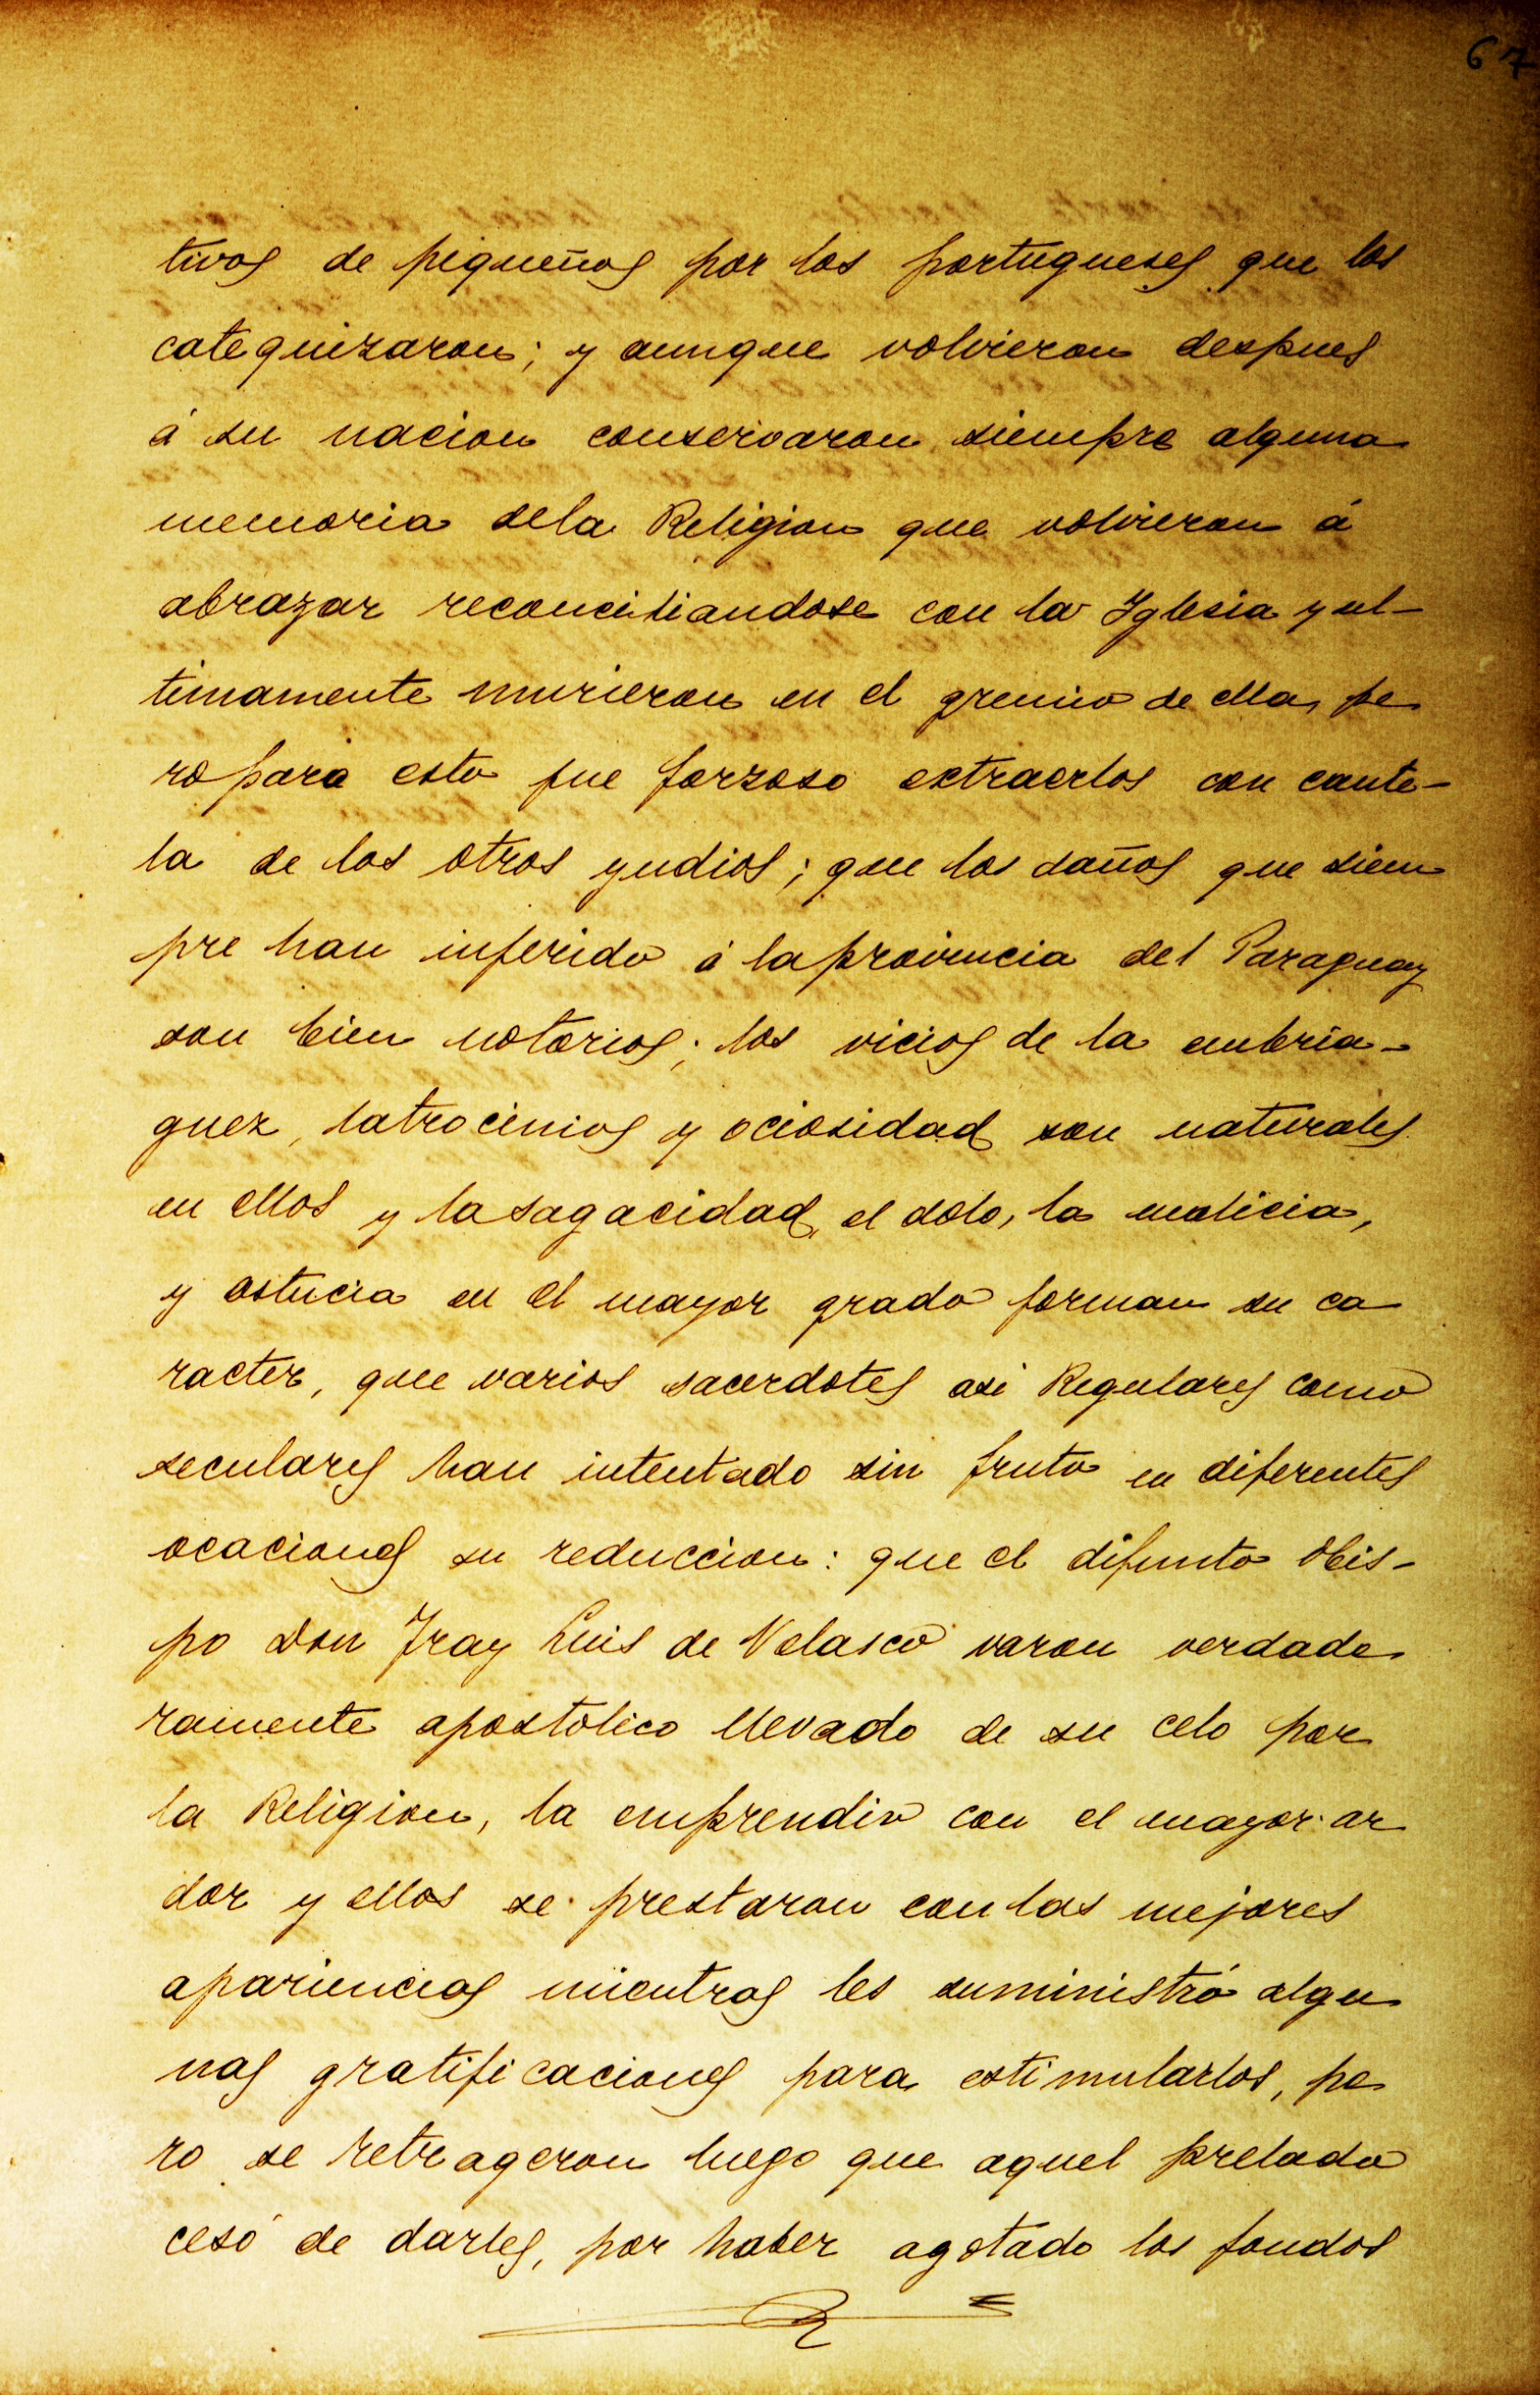 67
tivos de piqueños por los portugueses que los
catequizaron; y aunque volvieron despues
á su nacion conservaron siempre alguna
memoria dela Religion que volvieron á
abrazar reconciliandose con la Iglesia y ul-
timamente murieron en el gremio de ella, pe
ro para esto fue forzoso extraerlos con caute-
la de los otros yndios; que los daños que siem
pre han inferido á la provincia del Paraguay
son bien notorios; los vicios de la embria-
guez, latrocinios y ociosidad son naturales
en ellos y la sagacidad, el dolo, la malicia,
y astucia en el mayor grado forman su ca
racter, que varios sacerdotes asi Regulares como
seculares han intentado sin fruto en diferentes
ocaciones su reduccion: que el difunto Obis-
po Don Fray Luis de Velasco varon verdade
ramente apostolico llevado de su celo por
la Religion, la emprendio con el mayor ar
dor y ellos se prestaron con las mejores
apariencias mientras les suministró algu
nas gratificaciones para estimularlos, pe
ro se retrageron luego que aquel prelado
cesó de darles, por haber agotado los fondos